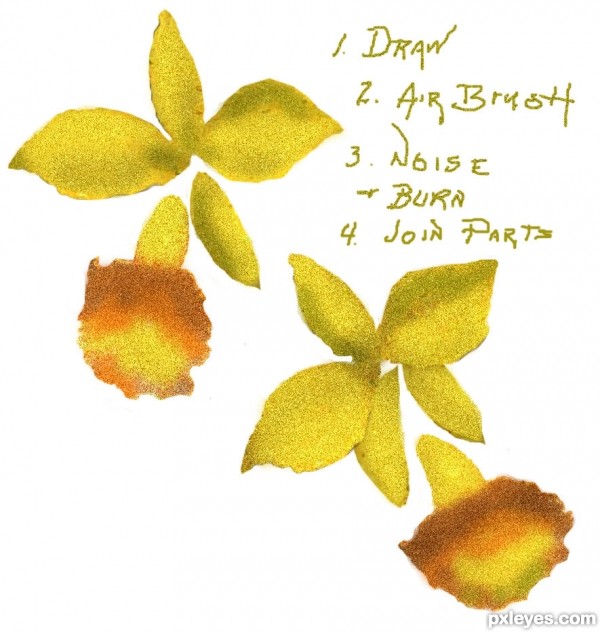 1. DRAW
2. AIR BRUSH
3. NOISE
+ BURN
4. JOIN PARTS
pxleyes.com